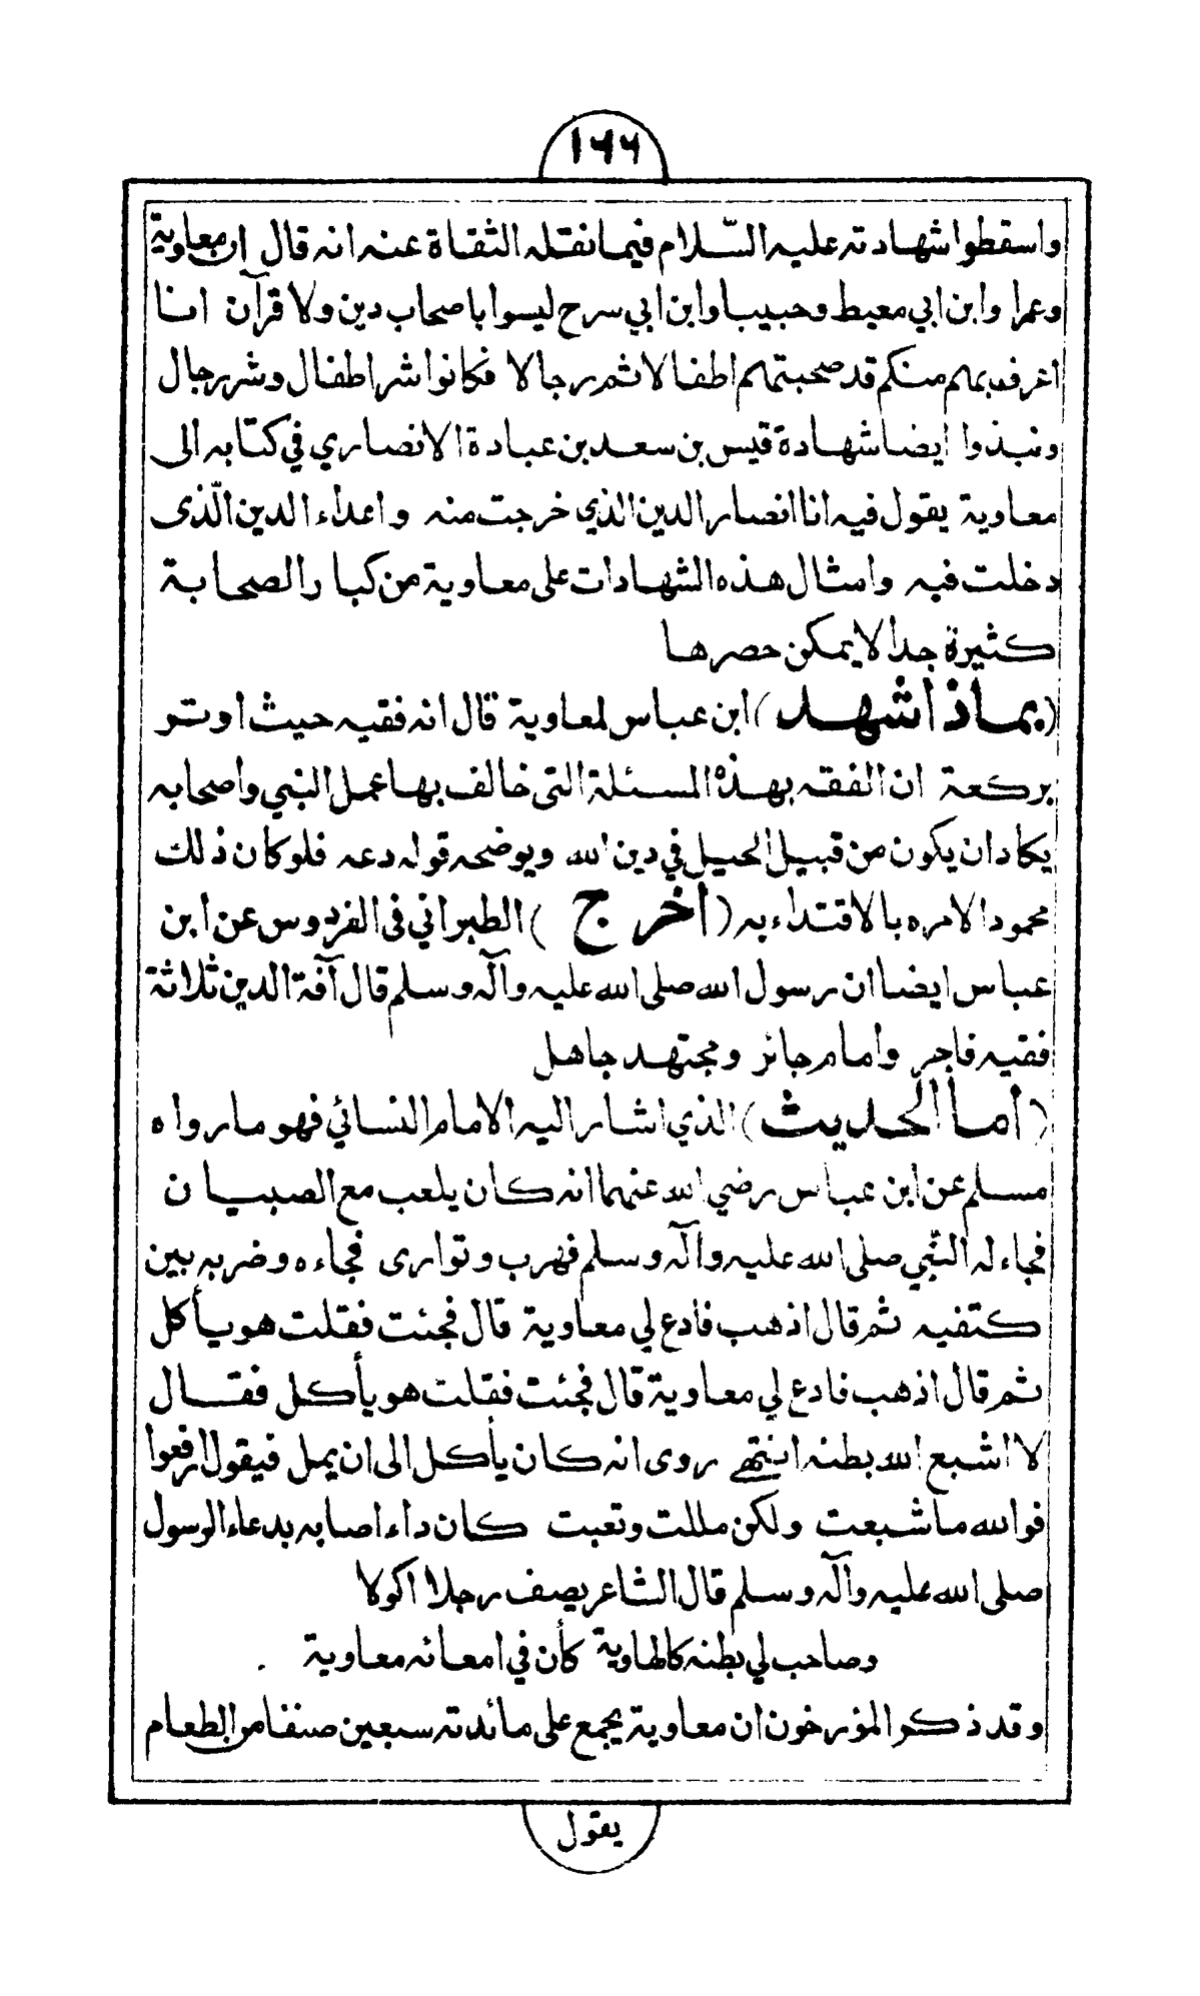 ١٦٦
واسقطوا شهادته عليه السّلام فيما نقله الثقاة عنه انه قال ان معاوية
وعمرا وابن ابي معيط وحبيبا وابن ابي سرح ليسوا باصحاب دين ولا قرآن انا
اعرف بهم منكم قد صحبتهم اطفالا ثم رجالا فكانوا شر اطفال وشر رجال
ونبذوا ايضا شهادة قيس بن سعد بن عبادة الانصاري في كتابه الى
معاوية يقول فيه انا انصار الدين الذي خرجت منه واعداء الدين الّذى
دخلت فيه وامثال هذه الشهادات على معاوية من كبار الصحابة
كثيرة جدا لا يمكن حصرها
(بماذا شهد) ابن عباس لمعاوية قال انه فقيه حيث اوتر
بركعة ان الفقه بهذه المسئلة التى خالف بها عمل النبي واصحابه
يكاد ان يكون من قبيل الحيل في دين الله ويوضحه قوله دعه فلو كان ذلك
محمودا لامره بالاقتداء به (أخرج) الطبراني فى الفردوس عن ابن
عباس ايضا ان رسول الله صلى الله عليه وآله وسلم قال آفة الدين ثلاثة
فقيه فاجر وامام جائر ومجتهد جاهل
(أما الحديث) الذي اشار اليه الامام النسائي فهو ما رواه
مسلم عن ابن عباس رضي الله عنهما انه كان يلعب مع الصبيان
فجاء له النّبي صلى الله عليه وآله وسلم فهرب وتوارى فجاءه وضربه بين
كتفيه ثم قال اذهب فادع لي معاوية قال فجئت فقلت هو يأكل
ثم قال اذهب فادع لي معاوية قال فجئت فقلت هو يأكل فقال
لا اشبع الله بطنه انتهى روى انه كان يأكل الى ان يمل فيقول ارفعوا
فوالله ما شبعت ولكن مللت وتعبت كان داء اصابه بدعاء الرسول
صلى الله عليه وآله وسلم قال الشاعر يصف رجلا اكولا
وصاحب لي بطنه كالهاوية كأن في امعائه معاوية
وقد ذكر المؤرخون ان معاوية يجمع على مائدته سبعين صنفا من الطعام
يقول